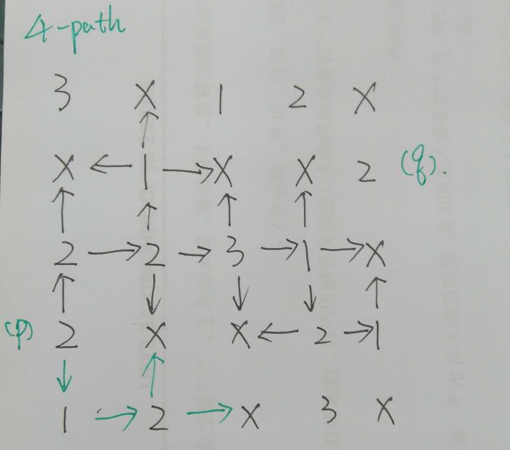 4-path
3 X 1 2 X
X ← 1 → X X 2 (q).
2 → 2 → 3 → 1 → X
(p) 2 X X ← 2 → 1
1 → 2 → X 3 X